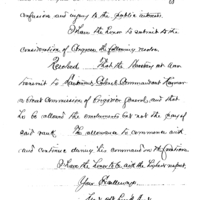 confusion and injury to the public interests.
I have the honor to submit to the
consideration of Congress the following motion
Resolved That the Secretary at War
transmit to Lieutenant Colonel Commandant Harmar
a Brevet Commission of Brigadier General, and that
he be allowed the emoluments but not the pay of
said rank. The allowance to commence with
and continue during his command on the frontiers.
I have the honor to be with the highest respect,
Your Excellency's